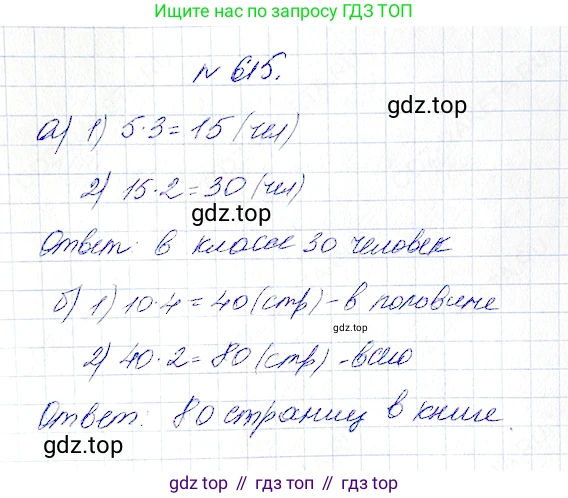 Ищите по запросу ГДЗ ТОП
N 615.
gdz.top
а) 1) 5·3=15 (чел)
2) 15·2=30 (чел)
gdz.top
Ответ: в классе 30 человек
б) 1) 10·4=40 (стр) - в половине
gdz.top
2) 40·2=80 (стр) - всего
Ответ: 80 страниц в книге.
gdz.top
gdz.top // гдз.топ // gdz.top // гдз.топ